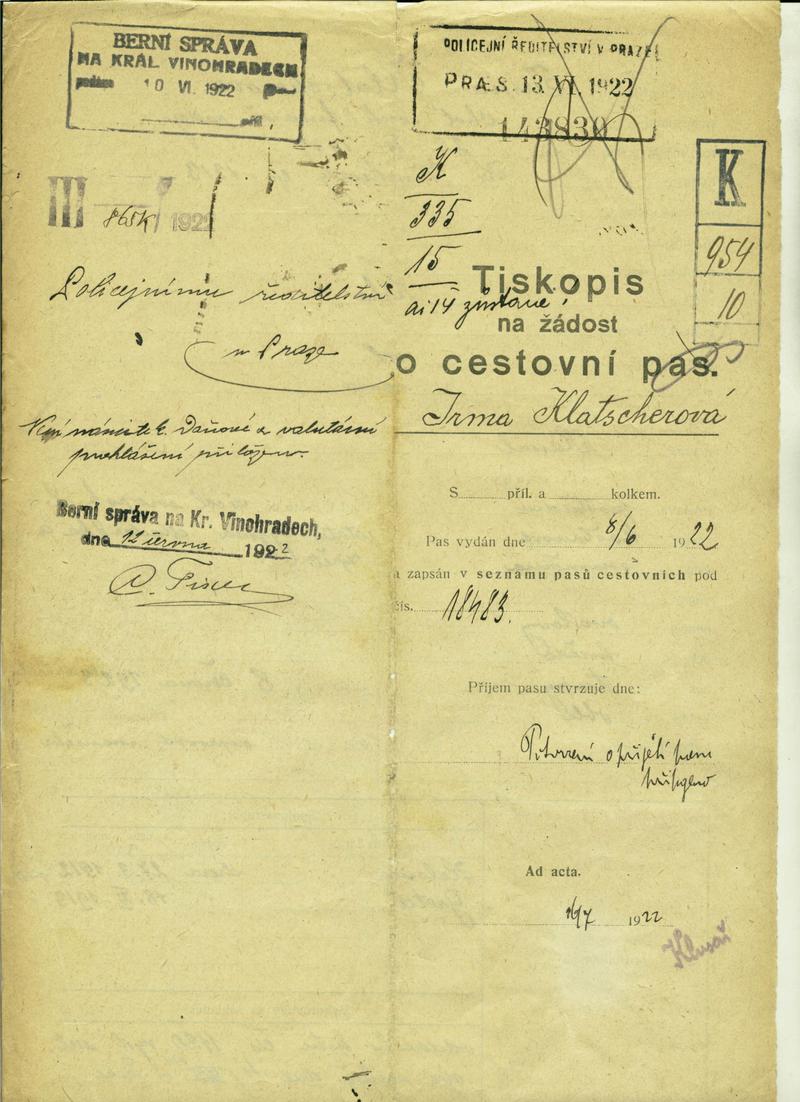 BERNÍ SPRÁVA
NA KRÁL VINOHRADECH
10 VI. 1922
III 1922
Policejnímu ředitelství
v Praze
Není námitek. Daňové a valutární
prohlášení přiloženo.
Berní správa na Kr. Vinohradech,
dne 12 června 1922
POLICEJNÍ ŘEDITELSTVÍ V PRAZE
PRÆS. 13. VI. 1922
143830
K
335
15
ai 14 zůstane!
K
954
10
Tiskopis
na žádost
o cestovní pas.
Irma Klatscherová
S příl. a kolkem.
Pas vydán dne 8/6 1922
a zapsán v seznamu pasů cestovních pod
čís. 18483.
Příjem pasu stvrzuje dne:
Potvrzení o přijetí pasu
připojeno
Ad acta.
16/7 1922